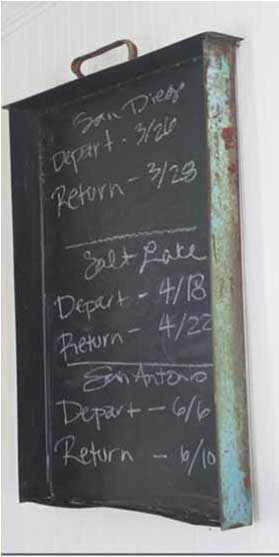 San Diego
Depart - 3/26
Return - 3/28
Salt Lake
Depart - 4/18
Return - 4/22
San Antonio
Depart - 6/6
Return - 6/10